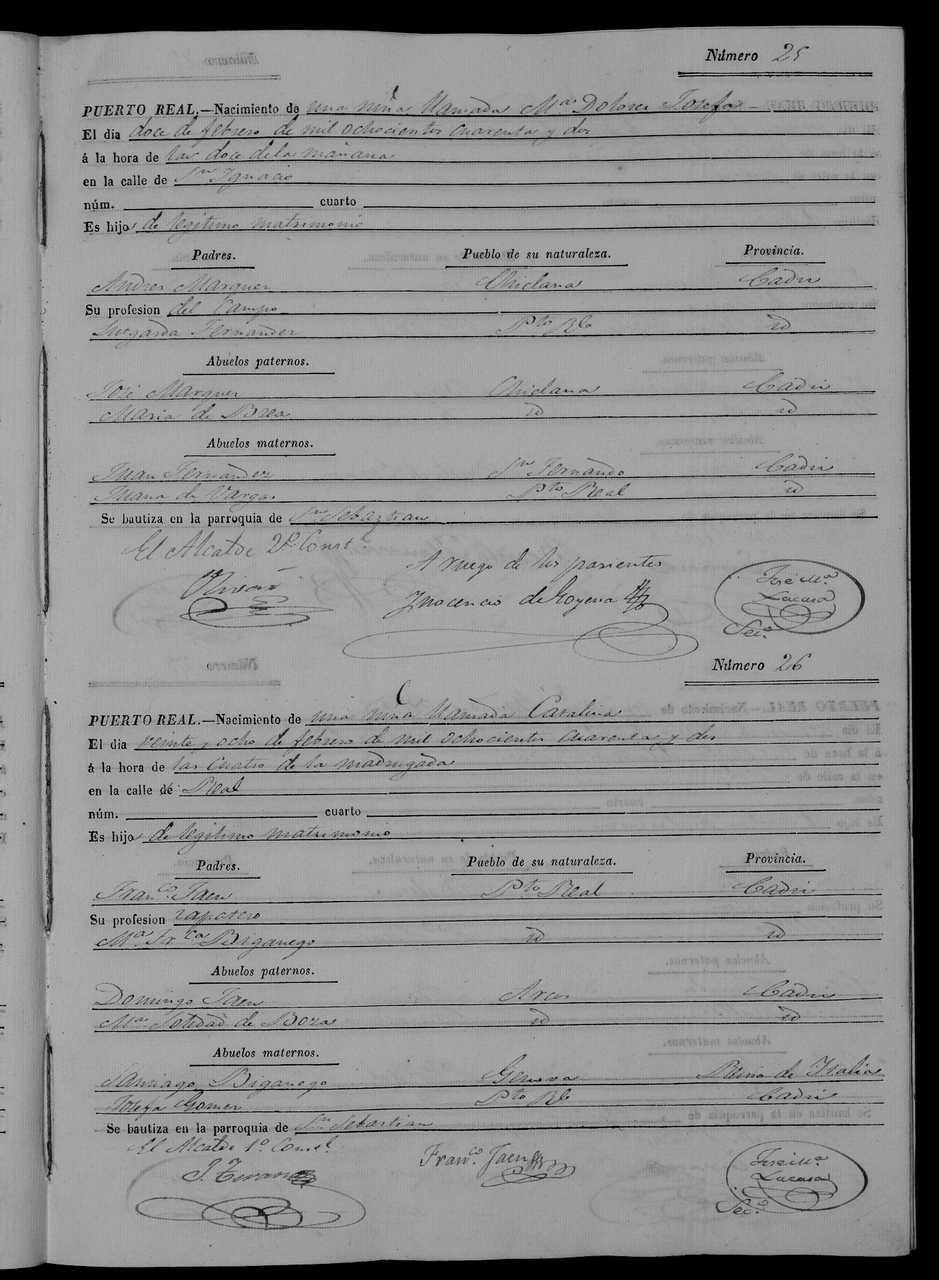 Número 25
PUERTO REAL.—Nacimiento de una niña llamada Mª Dolores Josefa
El dia doce de febrero de mil ochocientos cuarenta y dos
á la hora de las doce de la mañana
en la calle de Sn Ignacio
núm. cuarto
Es hijo de legitimo matrimonio
Padres. Pueblo de su naturaleza. Provincia.
Andres Marquez Chiclana Cadiz
Su profesion del Campo
Luzgarda Fernandez Pto Rl id
Abuelos paternos.
José Marquez Chiclana Cadiz
Maria de Brea id id
Abuelos maternos.
Juan Fernandez Sn Fernando Cadiz
Juana de Vargas Pto Real id
Se bautiza en la parroquia de Sn Sebaztian
El Alcalde 2º Constl.
A ruego de los parientes
Inocencio de Goyena
José Mª
Lacasa
Seco.
Número 26
PUERTO REAL.—Nacimiento de una niña llamada Catalina
El dia veinte y ocho de febrero de mil ochocientos cuarenta y dos
á la hora de las cuatro de la madrugada
en la calle de Real
núm. cuarto
Es hijo de legitimo matrimonio
Padres. Pueblo de su naturaleza. Provincia.
Franco. Jaen Pto Real Cadiz
Su profesion zapatero
Mª Frca Biganego id id
Abuelos paternos.
Domingo Jaen Arcos Cadiz
Mª Soledad de Boza id id
Abuelos maternos.
Santiago Biganego Genova Reino de Italia
Josefa Gomez Pto Rl Cadiz
Se bautiza en la parroquia de Sn Sebastian
El Alcalde 1º Constl.
Franco. Jaen
José Mª
Lacasa
Seco.